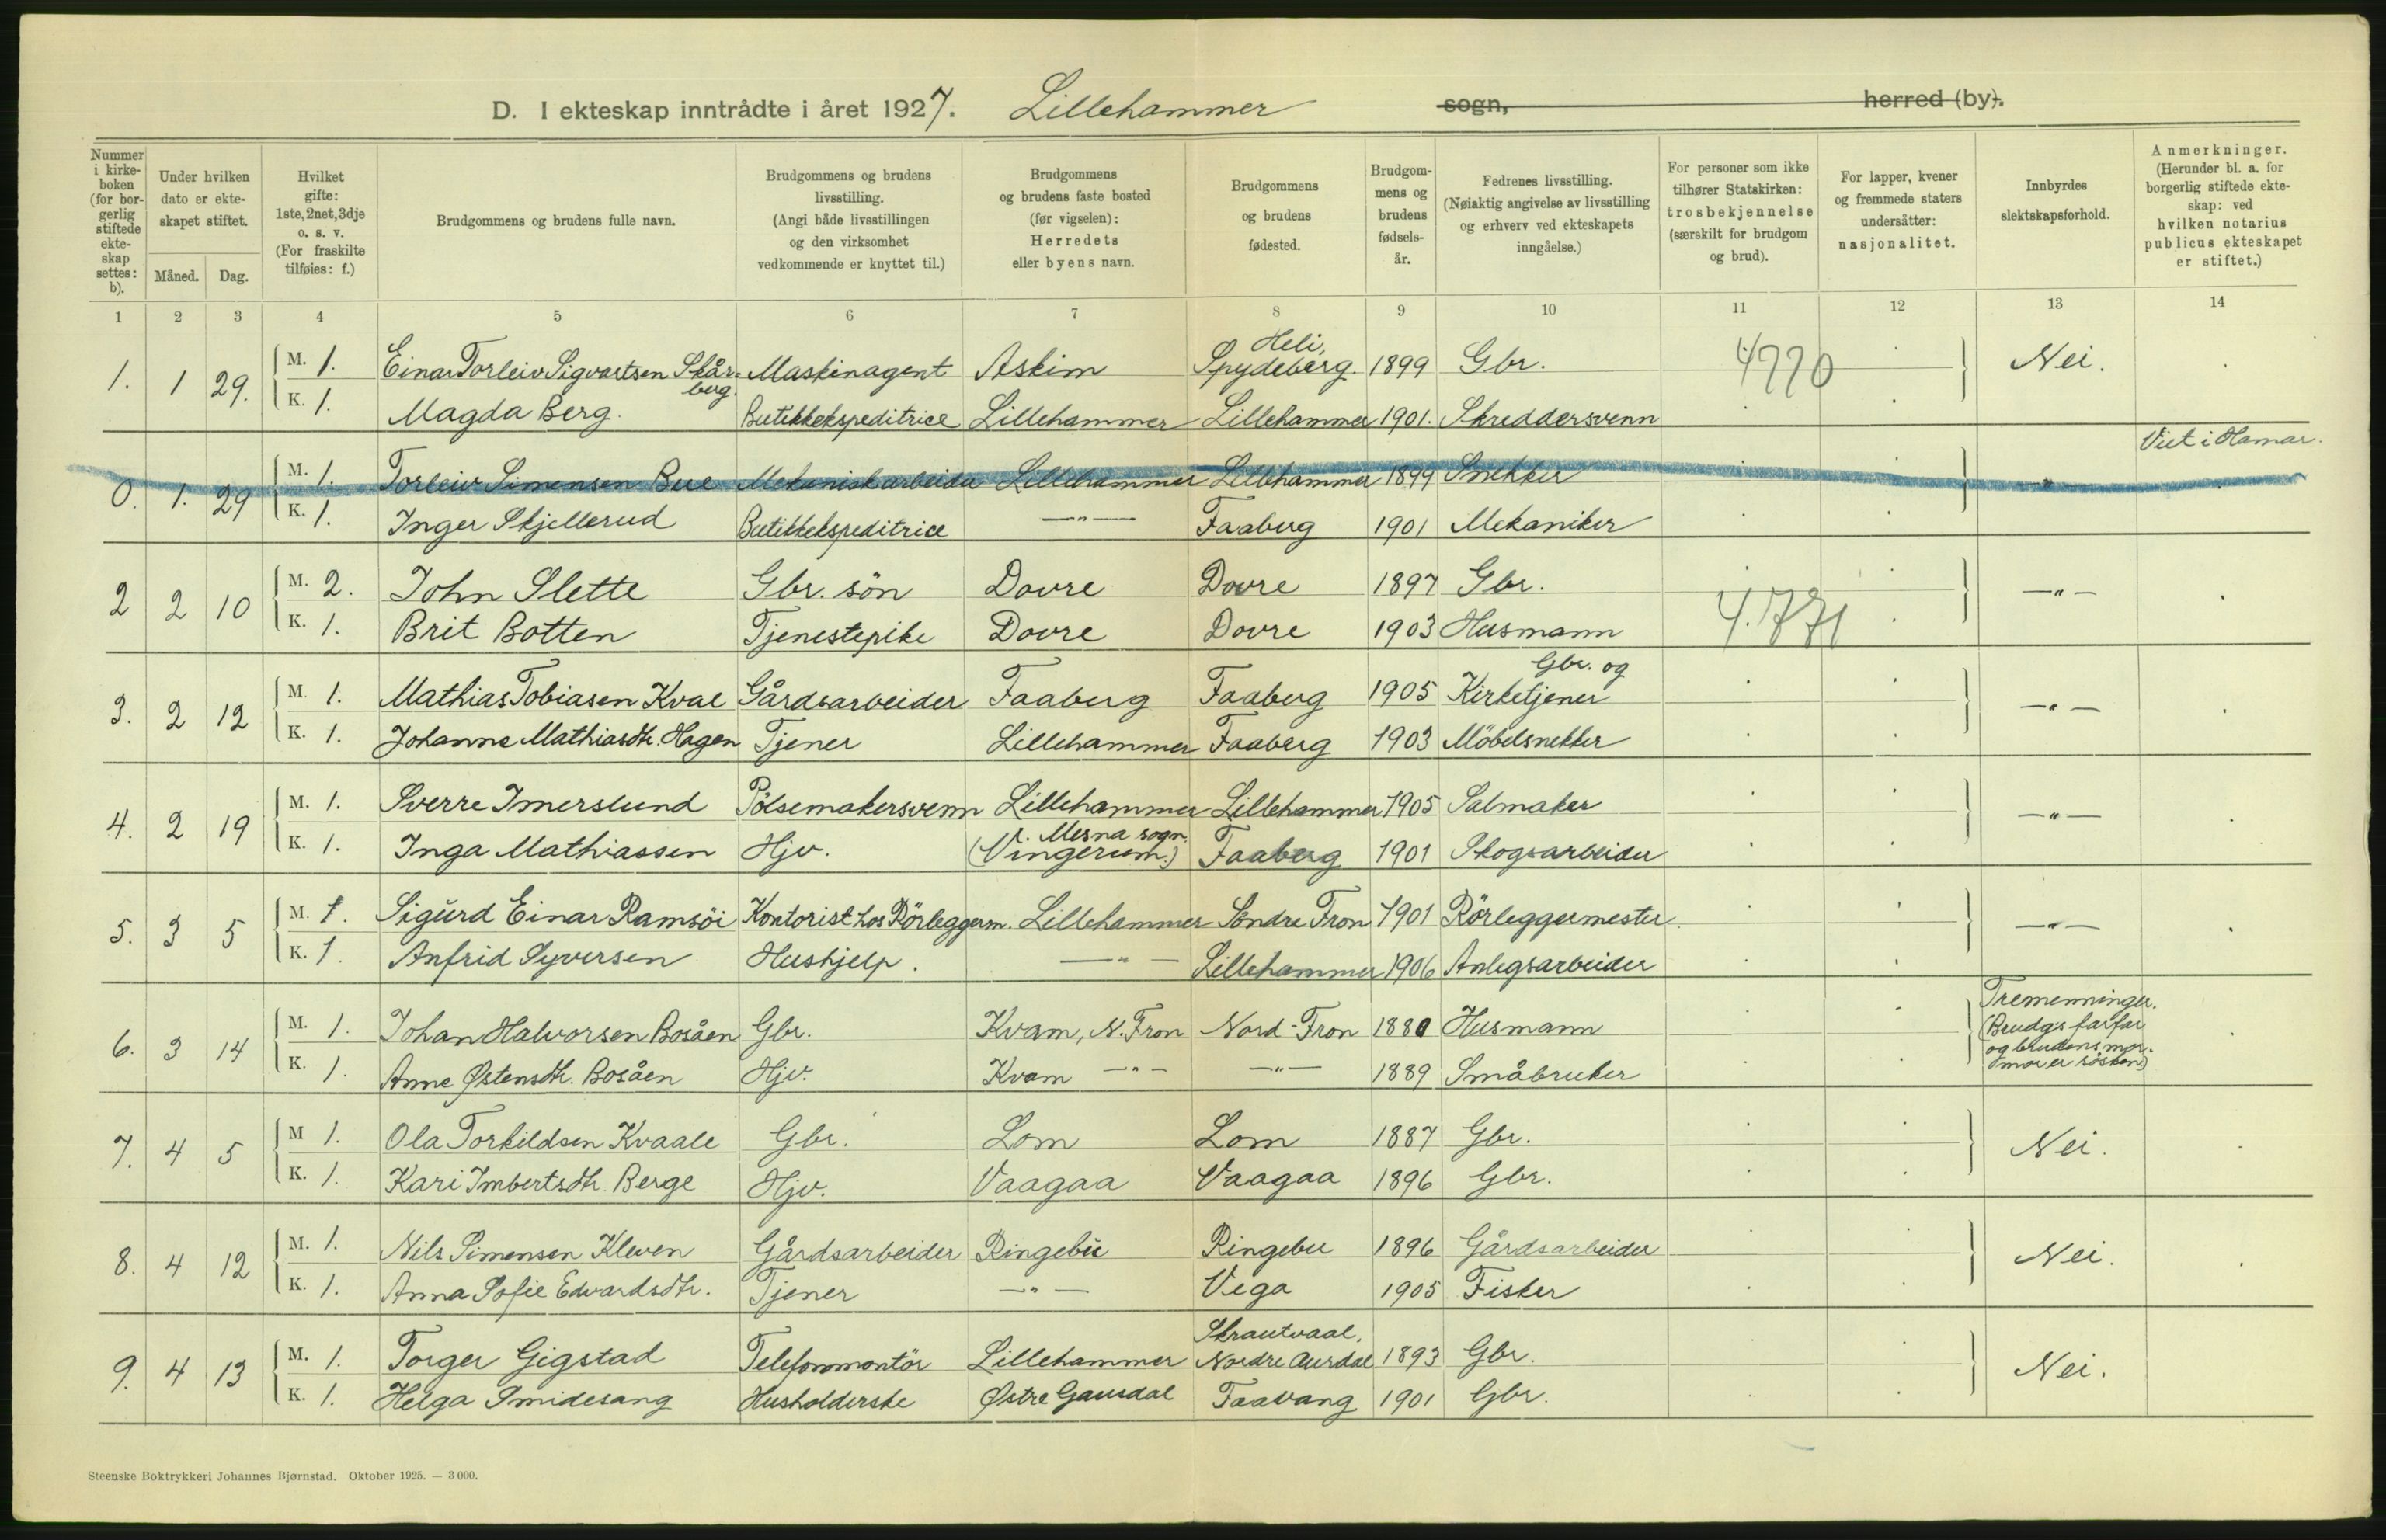 D. I ekteskap inntrådte i året 1927. Lillehammer sogn, herred (by).
Nummer i kirkeboken (for borgerlig stiftede ekteskap settes: b).
Under hvilken dato er ekteskapet stiftet.
Måned. Dag.
Hvilket gifte: 1ste, 2net, 3dje o. s. v. (For fraskilte tilføies: f.)
Brudgommens og brudens fulle navn.
Brudgommens og brudens livsstilling. (Angi både livsstillingen og den virksomhet vedkommende er knyttet til.)
Brudgommens og brudens faste bosted (før vigselen): Herredets eller byens navn.
Brudgommens og brudens fødested.
Brudgommens og brudens fødselsår.
Fedrenes livsstilling. (Nøiaktig angivelse av livsstilling og erhverv ved ekteskapets inngåelse.)
For personer som ikke tilhører Statskirken: trosbekjennelse (særskilt for brudgom og brud).
For lapper, kvener og fremmede staters undersåtter: nasjonalitet.
Innbyrdes slektskapsforhold.
Anmerkninger. (Herunder bl. a. for borgerlig stiftede ekteskap: ved hvilken notarius publicus ekteskapet er stiftet.)
1 2 3 4 5 6 7 8 9 10 11 12 13 14
1. 1 29. M. 1. Einar Torleiv Sigvartsen Skårberg. Maskinagent Askim Heli, Spydeberg. 1899 Gbr. 4770 Nei.
K. 1. Magda Berg. Butikkekspeditrice Lillehammer Lillehammer 1901. Skreddersvenn
0. 1. 29 M. 1. Torleiv Simensen Bue Mekanisk arbeider Lillehammer Lillehammer 1899 Snekker -"- Viet i Hamar.
K. 1. Inger Skjellerud Butikkekspeditrice -"- Faaberg 1901 Mekaniker
2 2 10 M. 2. John Slette Gbr. søn Dovre Dovre 1897 Gbr. -"-
K. 1. Brit Botten Tjenestepike Dovre Dovre 1903 Husmann 4.771
3. 2 12 M. 1. Mathias Tobiasen Kval Gårdsarbeider Faaberg Faaberg 1905 Gbr. og Kirketjener -"-
K. 1. Johanne Mathiasdtr. Hagen Tjener Lillehammer Faaberg 1903 Möbelsnekker
4. 2 19 M. 1. Sverre Imerslund Pölsemakersvenn Lillehammer Lillehammer 1905 Salmaker -"-
K. 1. Inga Mathiassen Hjv. (V. Mesna sogn. Vingerum.) Faaberg 1901 Skogsarbeider
5. 3 5 M. 1. Sigurd Einar Ramsöi Kontorist hos Rörleggerm. Lillehammer Söndre Fron 1901 Rörleggermester -"-
K. 1. Anfrid Syversen Hushjelp. -"- Lillehammer 1906 Anlegsarbeider
6. 3 14 M. 1. Johan Halvorsen Bosåen Gbr. Kvam, N. Fron Nord-Fron 1880 Husmann Tremenninger. (Brudg's farfar og brudens mormor er sösken)
K. 1. Anne Østensdtr. Bosåen Hjv. Kvam -"- -"- 1889 Småbruker
7. 4 5 M 1. Ola Torkildsen Kvaale Gbr. Lom Lom 1887 Gbr. Nei.
K. 1. Kari Imbertsdtr. Berge Hjv. Vaagaa Vaagaa 1896 Gbr.
8. 4 12 M. 1. Nils Simensen Kleven Gårdsarbeider Ringebu Ringebu 1896 Gårdsarbeider Nei.
K. 1. Anna Sofie Edvardsdtr. Tjener -"- Vega 1905 Fisker
9. 4 13 M. 1. Torger Gigstad Telefonmontör Lillehammer Skrautvaal, Nordre Aurdal 1893 Gbr. Nei.
K. 1. Helga Smidesang Husholderske Østre Gausdal Faavang 1901 Gbr.
Steenske Boktrykkeri Johannes Bjørnstad. Oktober 1925. — 3 000.